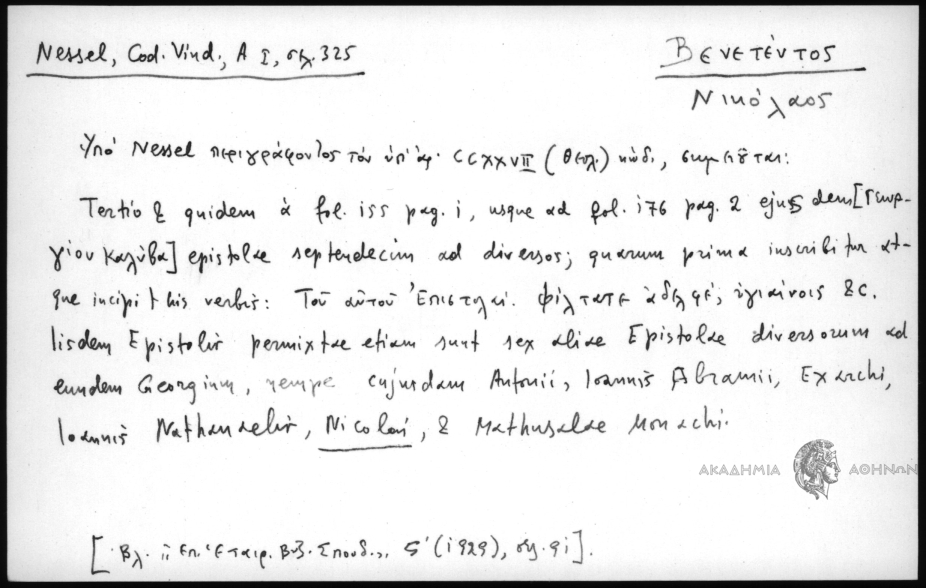 Nessel, Cod. Vind., A I, σελ. 325
Βενετέντος
Νικόλαος
Ὑπὸ Nessel περιγράφοντος τὸν ὑπ' ἀρ. CCXXVII (θεολ.) κώδ., σημειοῦται:
Tertio & quidem à fol. 155 pag. 1, usque ad fol. 176 pag. 2 ejusdem [Γεωρ-
γίου Καλύβα] epistolae septendecim ad diversos; quarum prima inscribitur at-
que incipit his verbis: Τοῦ αὐτοῦ Ἐπιστολαί. Φίλτατε ἀδελφέ, ὑγιαίνοις &c.
Iisdem Epistolis permixtae etiam sunt sex aliae Epistolae diversorum ad
eundem Georgium, nempe cujusdam Antonii, Ioannis Abramii, Exarchi,
Ioannis Nathanaelis, Nicolai, & Mathusalae Monachi.
ΑΚΑΔΗΜΙΑ ΑΘΗΝΩΝ
[Βλ. Ἐπ. Ἑταιρ. Βυζ. Σπουδ., ς' (1929), σελ. 91].